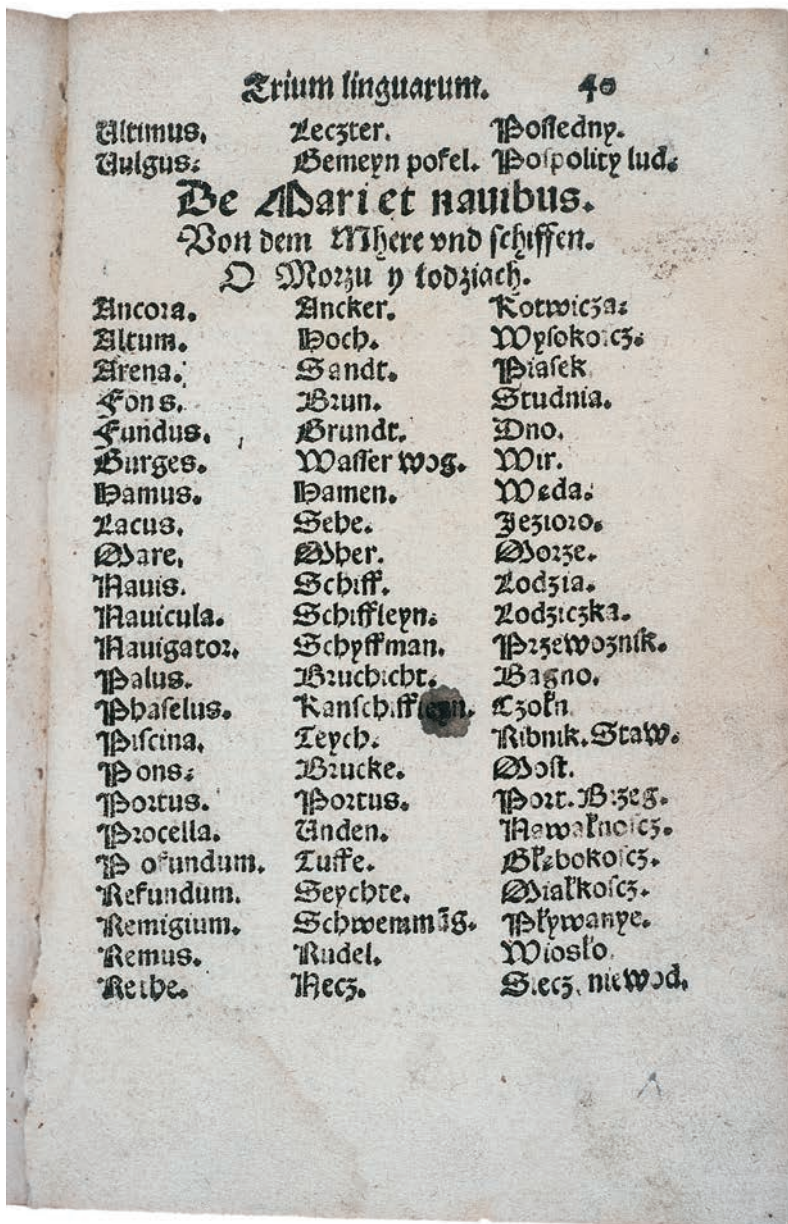 Trium linguarum. 40
Ultimus. Leczter. Posledny.
Uulgus: Gemeyn pofel. Pospolity lud.
De Mari et nauibus.
Von dem Mhere vnd schiffen.
O Morzu y łodziach.
Ancora. Ancker. Kotwicza:
Altum. Hoch. Wysokoscz.
Arena. Sandt. Piasek
Fons. Brun. Studnia.
Fundus. Grundt. Dno.
Gurges. Wasser wog. Wir.
Hamus. Hamen. Weda.
Lacus. Sehe. Jezioro.
Mare. Mher. Morze.
Nauis. Schiff. Lodzia.
Nauicula. Schiffleyn. Lodziczka.
Nauigator. Schyffman. Przewoznik.
Palus. Bruchicht. Bagno.
Phaselus. Kanschiffleyn. Czołn
Piscina. Teych. Ribnik. Staw.
Pons: Brucke. Most.
Portus. Portus. Port. Brzeg.
Procella. Unden. Nawałnoscz.
P ofundum. Tuffe. Głebokoscz.
Refundum. Seychte. Miałkoscz.
Remigium. Schwemmūg. Pływanye.
Remus. Rudel. Wiosło.
Rethe. Necz. Siecz, niewod.